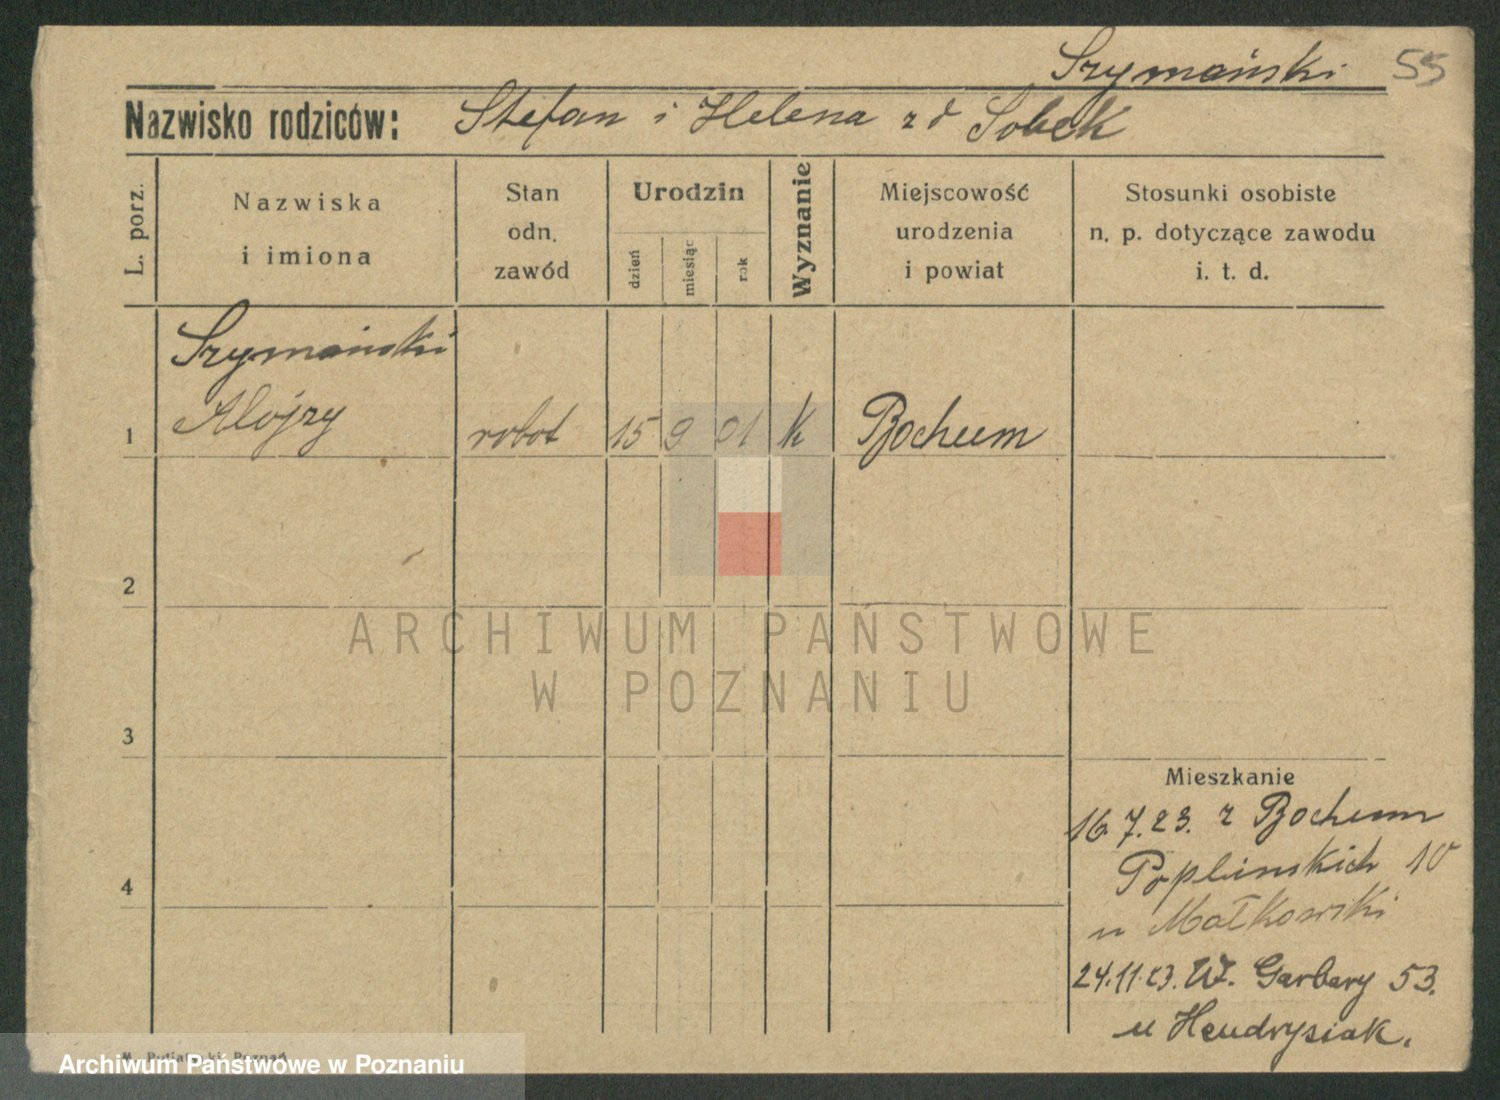 Szymański 55
Nazwisko rodziców: Stefan i Helena zd Sobek
L. porz.
Nazwiska
i imiona
Stan
odn.
zawód
Urodzin
dzień
miesiąc
rok
Wyznanie
Miejscowość
urodzenia
i powiat
Stosunki osobiste
n. p. dotyczące zawodu
i. t. d.
Szymański
1 Alojzy robot 15 9 01 k Bochum
2
ARCHIWUM PAŃSTWOWE
W POZNANIU
3
Mieszkanie
16.7.23. z Bochum
4 Poplinskich 10
u Małkowski
24.11.23. W. Garbary 53.
u Hendrysiak.
Archiwum Państwowe w Poznaniu